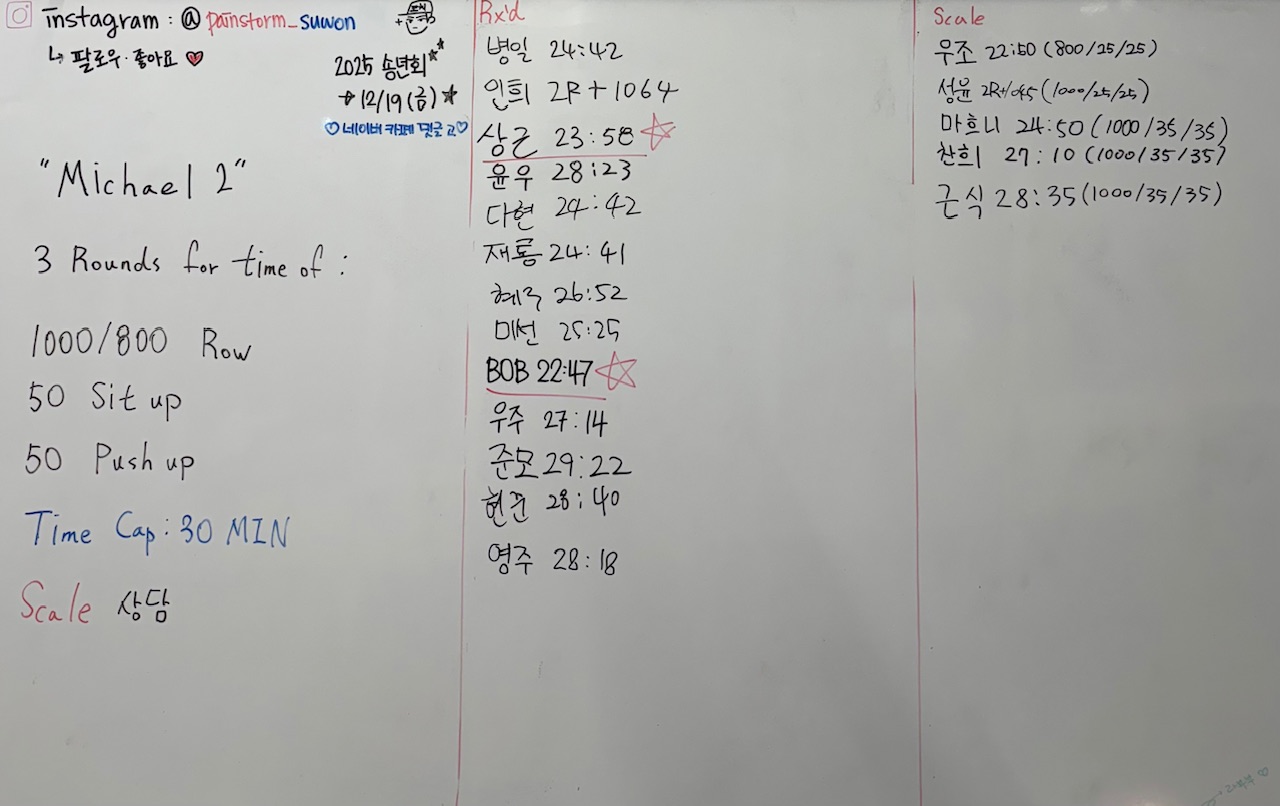 instagram : @ painstorm_suwon
↳ 팔로우·좋아요 ♥
2025 송년회
→ 12/19(금)
♡네이버 카페 댓글 고♡
"Michael 2"
3 Rounds for time of :
1000/800 Row
50 Sit up
50 Push up
Time Cap : 30 MIN
Scale 상담
Rx'd
병일 24:42
인희 2R+1064
상근 23:58
윤우 28:23
다현 24:42
재룡 24:41
혜주 26:52
미선 25:25
BOB 22:47
우주 27:14
준모 29:22
현준 28:40
영주 28:18
Scale
우조 22:50 (800/25/25)
성윤 2R+1045 (1000/25/25)
마흐니 24:50 (1000/35/35)
찬희 27:10 (1000/35/35)
근식 28:35 (1000/35/35)